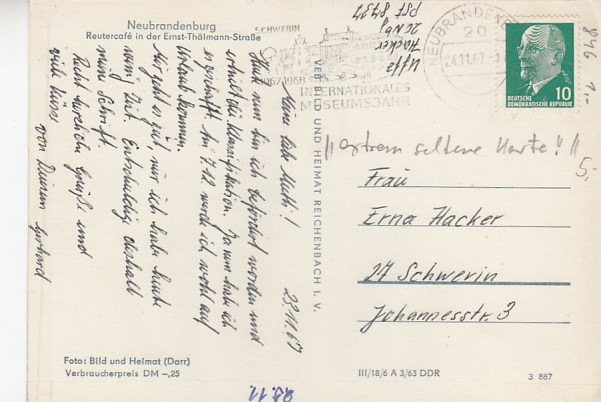 Neubrandenburg
Reutercafé in der Ernst-Thälmann-Straße
23.11.67
Meine liebe Mutti!
Heute nun bin ich befördert worden und
erhielt die Klassifikation. Dann habe ich
es geschafft. Am 7.12. werde ich wohl auf
Urlaub kommen.
Mir geht es gut, nur ich habe heute
wenig Zeit. Entschuldige deshalb
meine Schrift.
Recht herzliche Grüße und
viele Küsse
von Deinem Gerhard
Foto: Bild und Heimat (Darr)
Verbraucherpreis DM -,25
23.11.
VEB BILD UND HEIMAT REICHENBACH I. V.
SCHWERIN
1967/1968
INTERNATIONALES
MUSEUMSJAHR
Uffz
Hacker
20 Nbg
PSF
NEUBRANDENB
20
24.11.67
10
DEUTSCHE
DEMOKRATISCHE REPUBLIK
846
1,-
"extrem seltene Karte!"
5,-
Frau
Erna Hacker
27 Schwerin
Johannesstr. 3
III/18/6 A 3/63 DDR
3 887